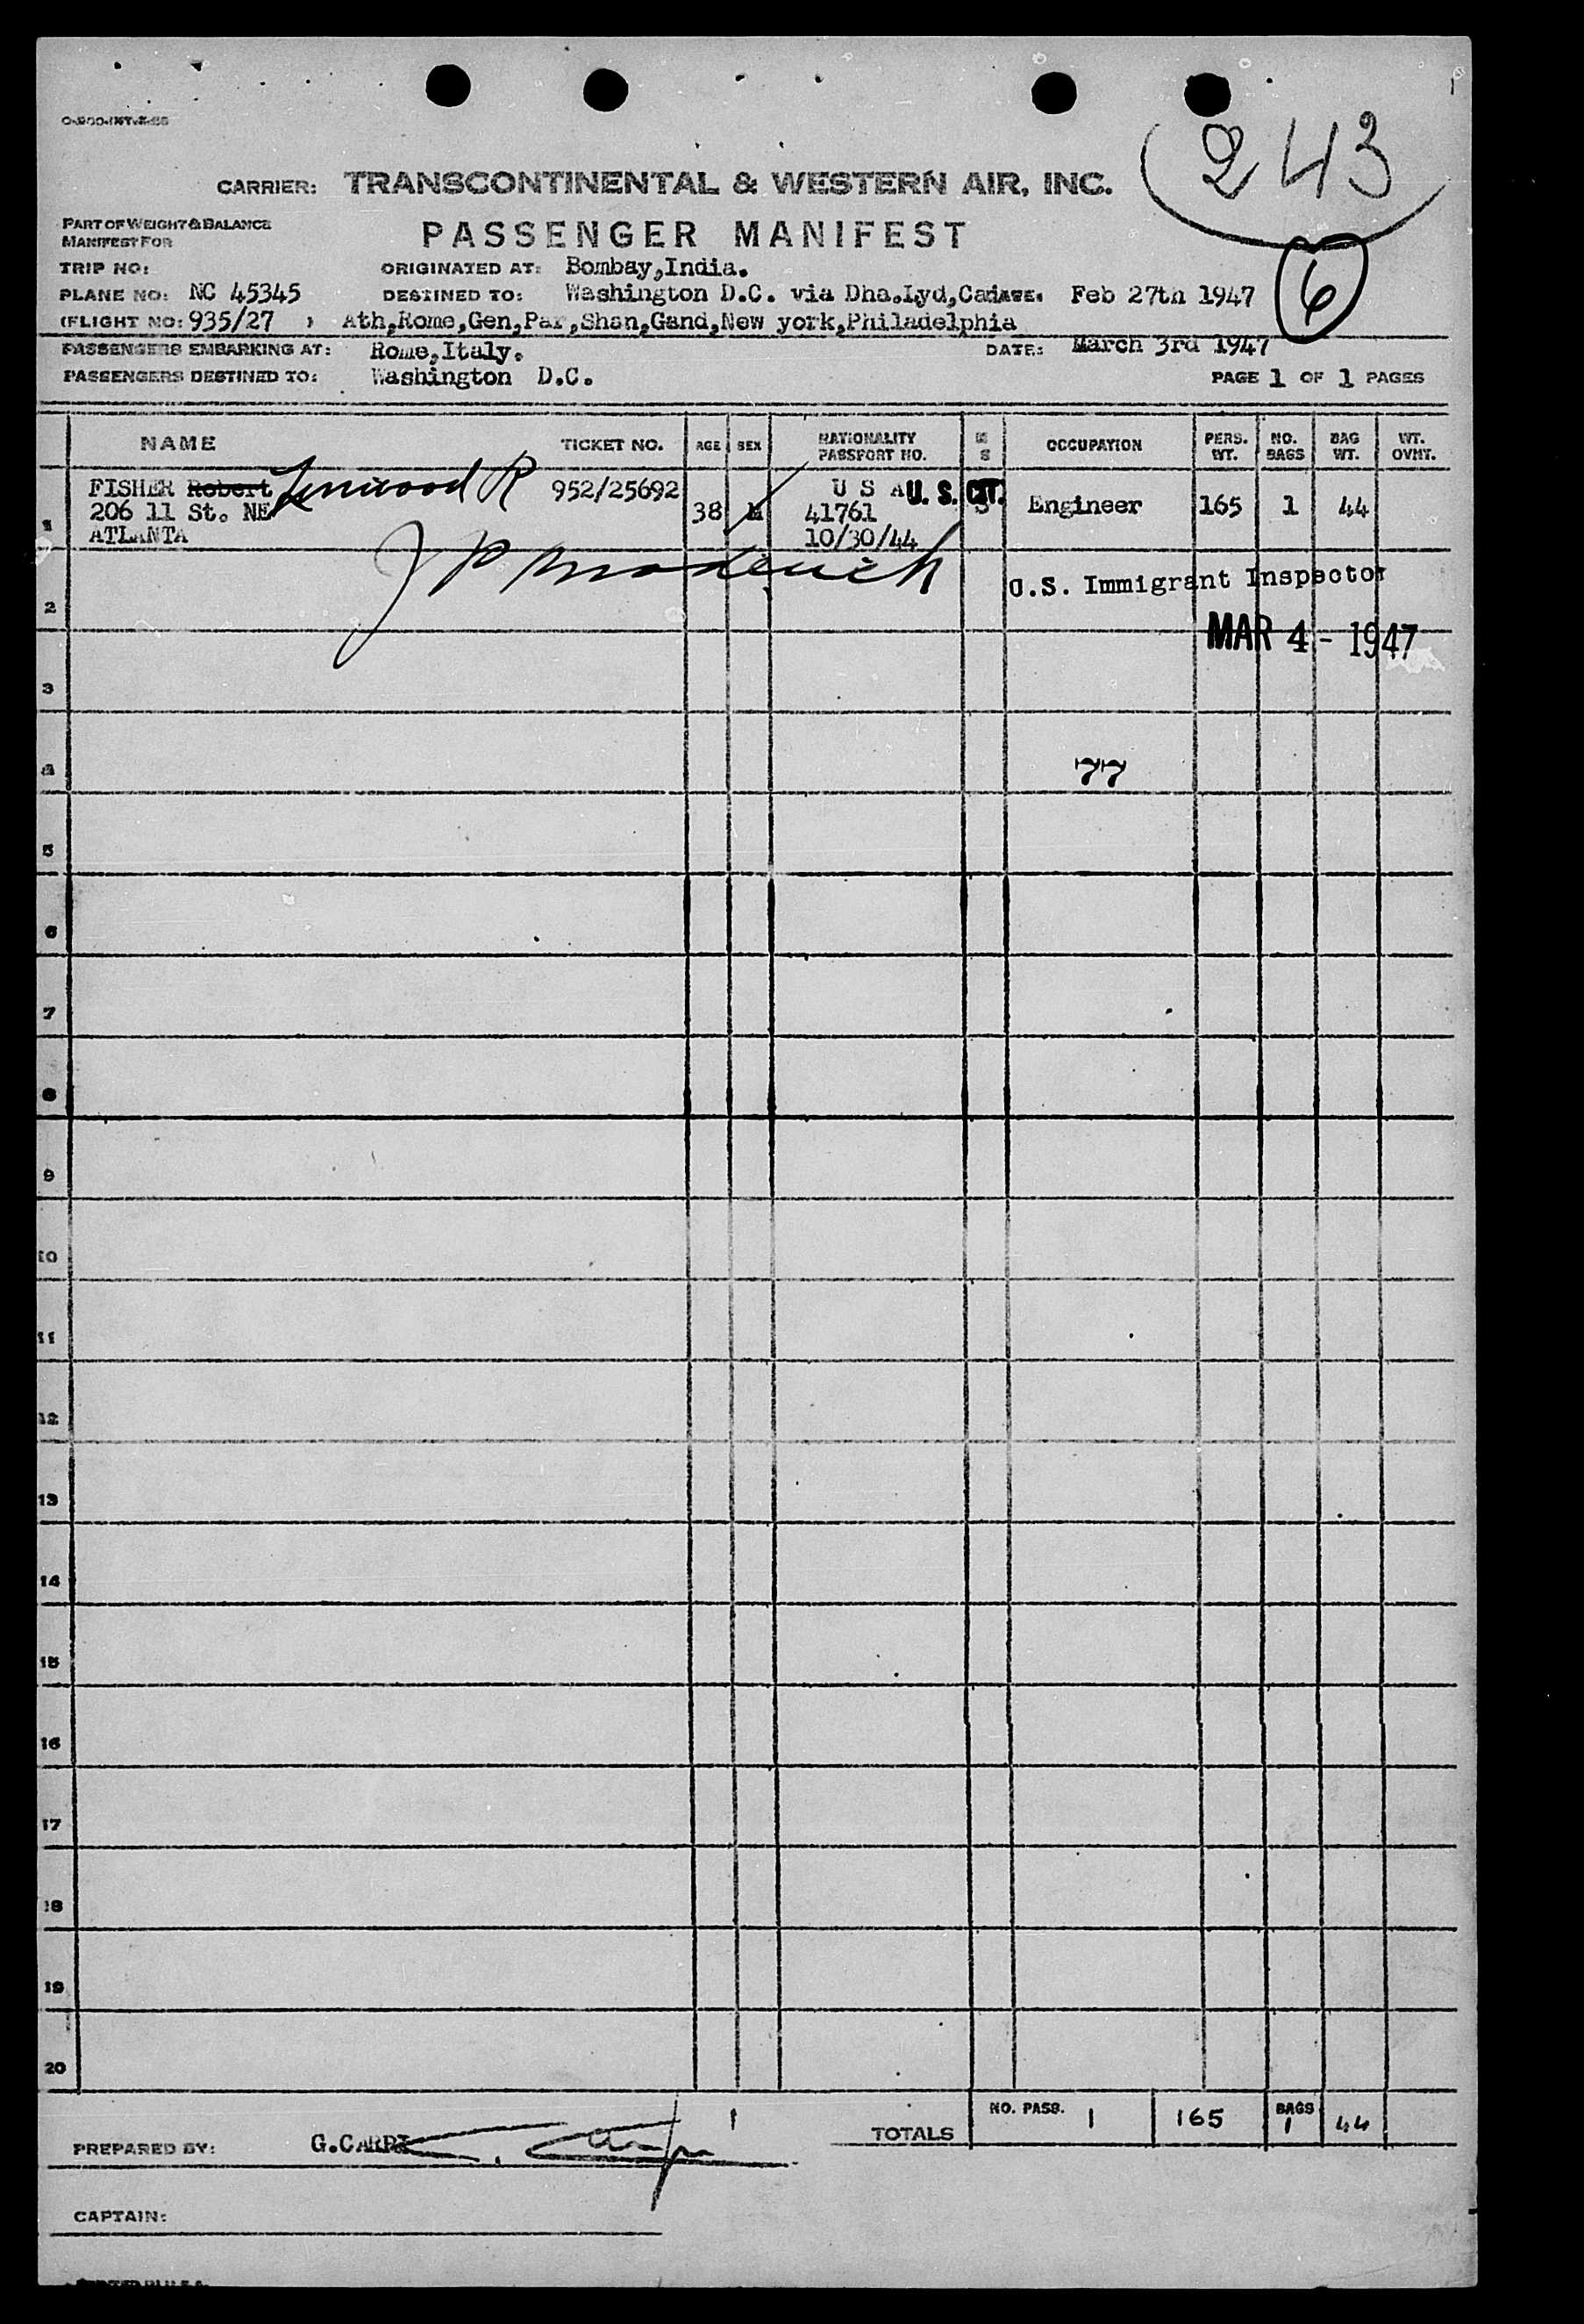 243
CARRIER: TRANSCONTINENTAL & WESTERN AIR, INC.
PART OF WEIGHT & BALANCE
MANIFEST FOR
PASSENGER MANIFEST
6
TRIP NO: ORIGINATED AT: Bombay,India.
PLANE NO: NC 45345 DESTINED TO: Washington D.C. via Dha.Lyd,Cai DATE: Feb 27th 1947
(FLIGHT NO: 935/27 ) Ath,Rome,Gen,Par,Shan,Gand,New york,Philadelphia
PASSENGERS EMBARKING AT: Rome,Italy. DATE: March 3rd 1947
PASSENGERS DESTINED TO: Washington D.C. PAGE 1 OF 1 PAGES
NAME TICKET NO. AGE SEX NATIONALITY PASSPORT NO. M S OCCUPATION PERS. WT. NO. BAGS BAG WT. WT. OVNT.
1 FISHER Robert Linwood R 952/25692 38 M U S A U. S. CIT. S Engineer 165 1 44
206 11 St. NE 41761
ATLANTA 10/30/44
U.S. Immigrant Inspector
2
MAR 4 - 1947
3
4 77
5
6
7
8
9
10
11
12
13
14
15
16
17
18
19
20
1 TOTALS NO. PASS. 1 165 BAGS 1 44
PREPARED BY: G.CARPI
CAPTAIN: